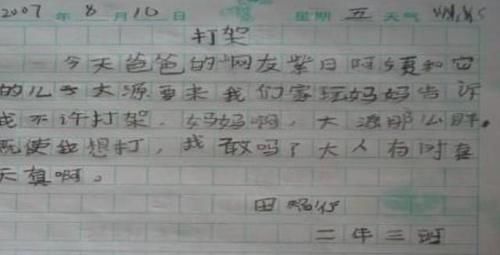 2007年8月10日 星期五天气
打架
今天爸爸的网友紫日阿须和它
的儿子大源要来我们家玩妈妈告诉
我不许打架。妈妈啊，大源那么胖，
既使我想打，我敢吗？大人有时真
天真啊。
田
二年三班